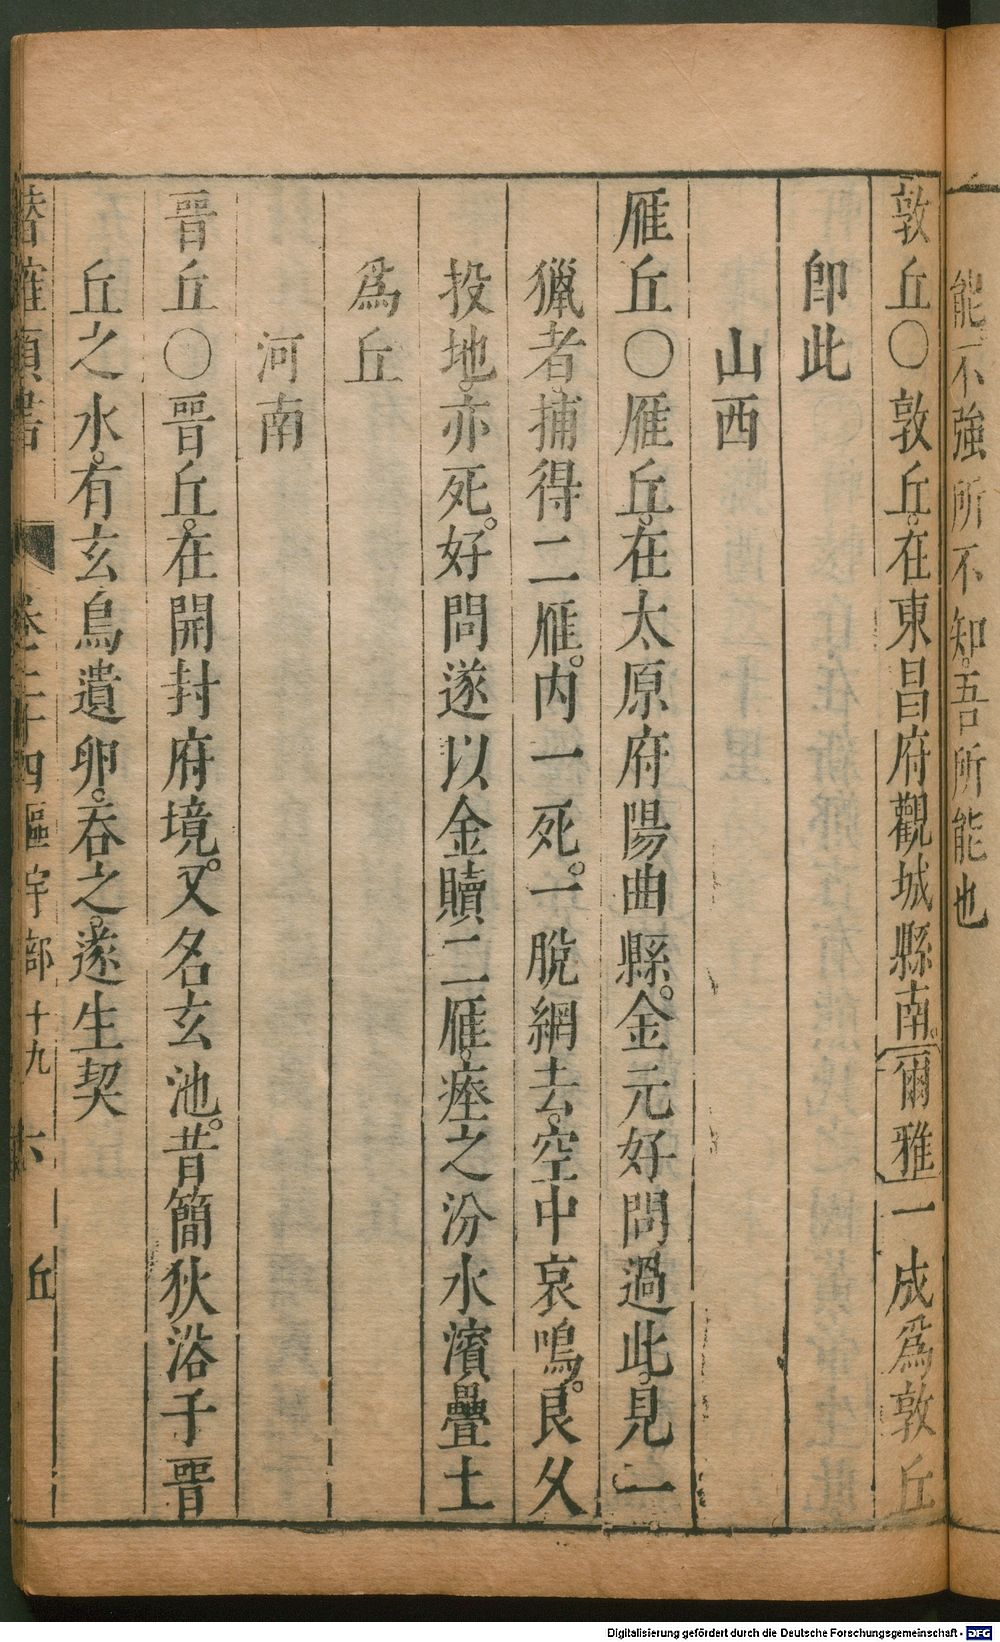 能不強所不知。吾所能也
敦丘〇敦丘。在東昌府觀城縣南。爾雅一成爲敦丘
卽此
山西
雁丘〇雁丘。在太原府陽曲縣。金元好問過此。見一
獵者。捕得二雁。內一死。一脫網去。空中哀鳴。良久
投地。亦死。好問遂以金贖二雁。瘞之汾水濱疊土
爲丘
河南
晋丘〇晋丘。在開封府境。又名玄池。昔簡狄浴于晋
丘之水。有玄鳥遺卵。吞之。遂生契
潛確類書 卷二十四 區宇部十九 六 丘
Digitalisierung gefördert durch die Deutsche Forschungsgemeinschaft - DFG